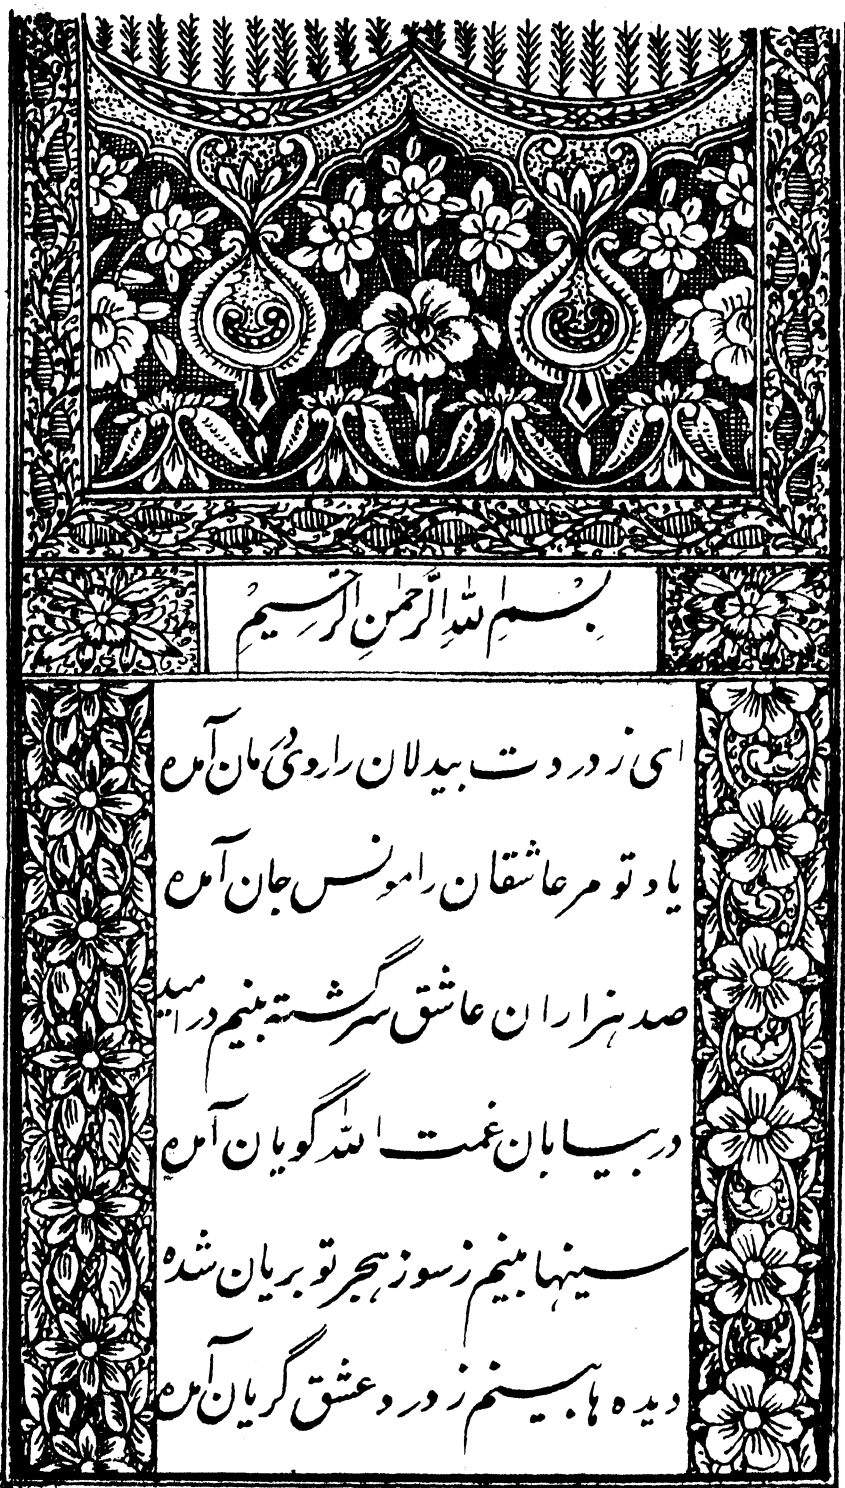 بسم الله الرحمن الرحیم
ای ز دردت بیدلان را روی درمان آمده
یاد تو مر عاشقان را مونس جان آمده
صد هزاران عاشق سرگشته بینم در امید
در بیابان غمت الله گویان آمده
سینها بینم ز سوز هجر تو بریان شده
دیده ها بینم ز درد عشق گریان آمده